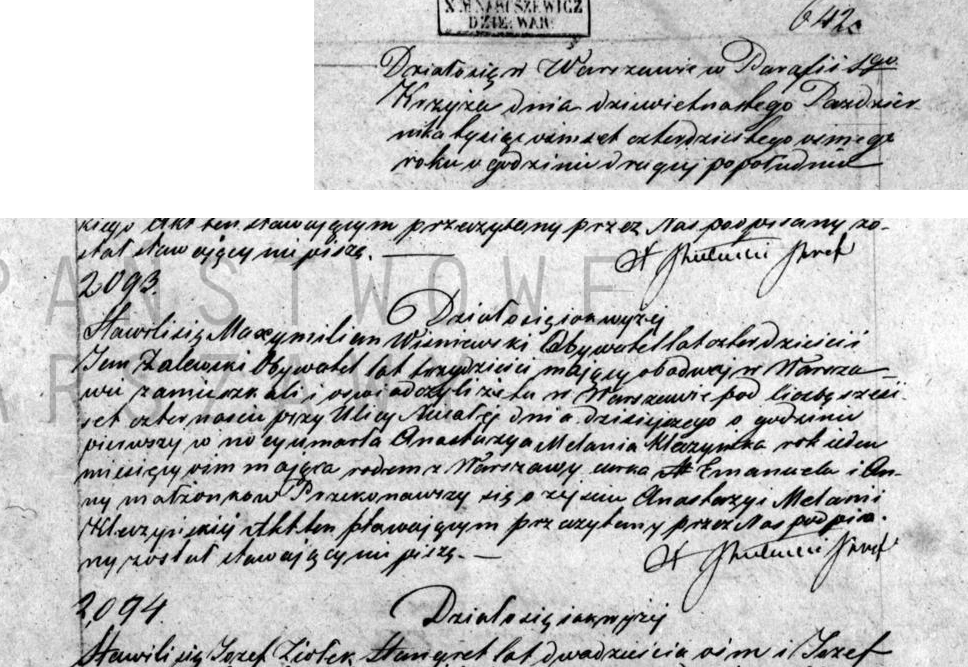 X.M NARUSZEWICZ
DZIE: WAR:
642.
Działo się w Warszawie w Parafii Sgo
Krzyża dnia dziewietnastego Pazdzier
nika tysiąc ośmset czterdziestego osmego
roku o godzinie drugiej popołudniu
kiego Akt ten stawającym przeczytany przez Nas podpisany zo-
stał stawający nie piszą.
2093.
Działo się iak wyżej
Stawili się Maxymilian Wisniewski Obywatel lat czterdzieści i
Jan Zalewski Obywatel lat trzydzieści mający obadwaj w Warsza
wie zamieszkali i oświadczyli iż tu w Warszawie pod liczbą sześć
set czternastu przy Ulicy dnia dzisiejszego o godzinie
pierwszy w nocy umarła Anastazya Melania Kleczynska rok ieden
miesięcy ośm maiąca rodem z Warszawy córka Emanuela i An-
ny małżonków Przekonawszy się o zejściu Anastazyi Melanii
Kleczyńskiej Akt ten stawającym przeczytany przez Nas podpisa-
ny został stawający nie piszą.
2094.
Działo się iak wyżej
Stawili się Jozef Ziołek Stangret lat dwadzieścia ośm i Jozef
PAŃSTWOWE
WARSZAW